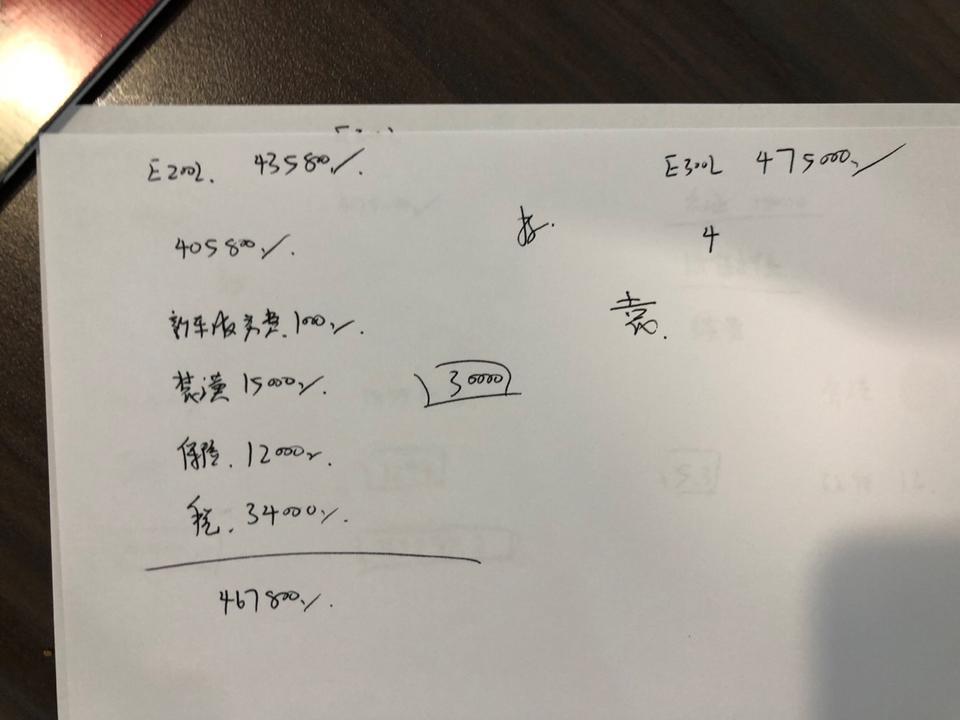 E200L. 435800/.
E300L 475000/
405800/.
4
新车服务费.1000/.
装潢 15000/. 30000
保险.12000/.
税.34000/.
467800/.